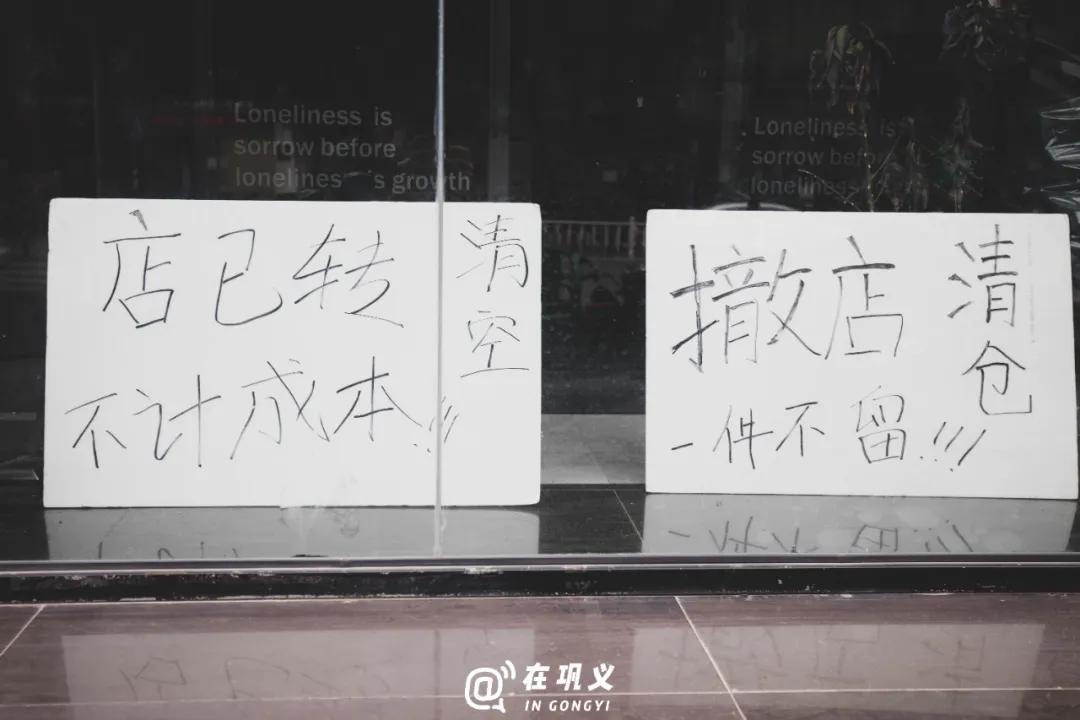 Loneliness is
sorrow before
loneliness s growth
Loneliness is
sorrow befo
loneliness
店已转
不计成本!!!
清空
撤店
一件不留!!!
清仓
在巩义
IN GONGYI